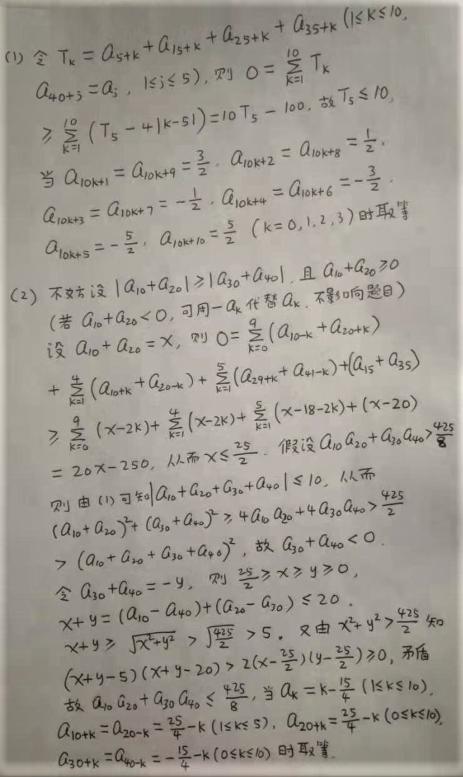 (1) 令 Tₖ = a₅₊ₖ + a₁₅₊ₖ + a₂₅₊ₖ + a₃₅₊ₖ (1≤k≤10,
a₄₀₊ⱼ = aⱼ, 1≤j≤5), 则 0 = ∑_{k=1}^{10} Tₖ
≥ ∑_{k=1}^{10} (T₅ - 4|k-5|) = 10T₅ - 100, 故 T₅ ≤ 10,
当 a₁₀ₖ₊₁ = a₁₀ₖ₊₉ = 3/2, a₁₀ₖ₊₂ = a₁₀ₖ₊₈ = 1/2,
a₁₀ₖ₊₃ = a₁₀ₖ₊₇ = -1/2, a₁₀ₖ₊₄ = a₁₀ₖ₊₆ = -3/2,
a₁₀ₖ₊₅ = -5/2, a₁₀ₖ₊₁₀ = 5/2 (k=0,1,2,3) 时取等
(2) 不妨设 |a₁₀+a₂₀| ≥ |a₃₀+a₄₀|, 且 a₁₀+a₂₀≥0
(若 a₁₀+a₂₀<0, 可用-aₖ代替aₖ, 不影响题目)
设 a₁₀+a₂₀=x, 则 0 = ∑_{k=0}^{9} (a₁₀₋ₖ + a₂₀₊ₖ)
+ ∑_{k=1}^{4} (a₁₀₊ₖ + a₂₀₋ₖ) + ∑_{k=1}^{5} (a₂₉₊ₖ + a₄₁₋ₖ) + (a₁₅ + a₃₅)
≥ ∑_{k=0}^{9} (x-2k) + ∑_{k=1}^{4} (x-2k) + ∑_{k=1}^{5} (x-18-2k) + (x-20)
= 20x-250, 从而 x≤25/2. 假设 a₁₀a₂₀+a₃₀a₄₀>425/8
则由(1)可知|a₁₀+a₂₀+a₃₀+a₄₀| ≤ 10, 从而
(a₁₀+a₂₀)²+(a₃₀+a₄₀)² ≥ 4a₁₀a₂₀+4a₃₀a₄₀ > 425/2
> (a₁₀+a₂₀+a₃₀+a₄₀)², 故 a₃₀+a₄₀<0.
令 a₃₀+a₄₀=-y, 则 25/2 ≥ x ≥ y ≥ 0,
x+y = (a₁₀-a₄₀)+(a₂₀-a₃₀) ≤ 20.
x+y ≥ √(x²+y²) > √(425/2) > 5. 又由 x²+y²>425/2 知
(x+y-5)(x+y-20) > 2(x-25/2)(y-25/2) ≥ 0, 矛盾
故 a₁₀a₂₀+a₃₀a₄₀ ≤ 425/8, 当 aₖ=k-15/4 (1≤k≤10),
a₁₀₊ₖ = a₂₀₋ₖ = 25/4-k (1≤k≤5), a₂₀₊ₖ = 25/4-k (0≤k≤10),
a₃₀₊ₖ = a₄₀₋ₖ = -15/4-k (0≤k≤10) 时取等.